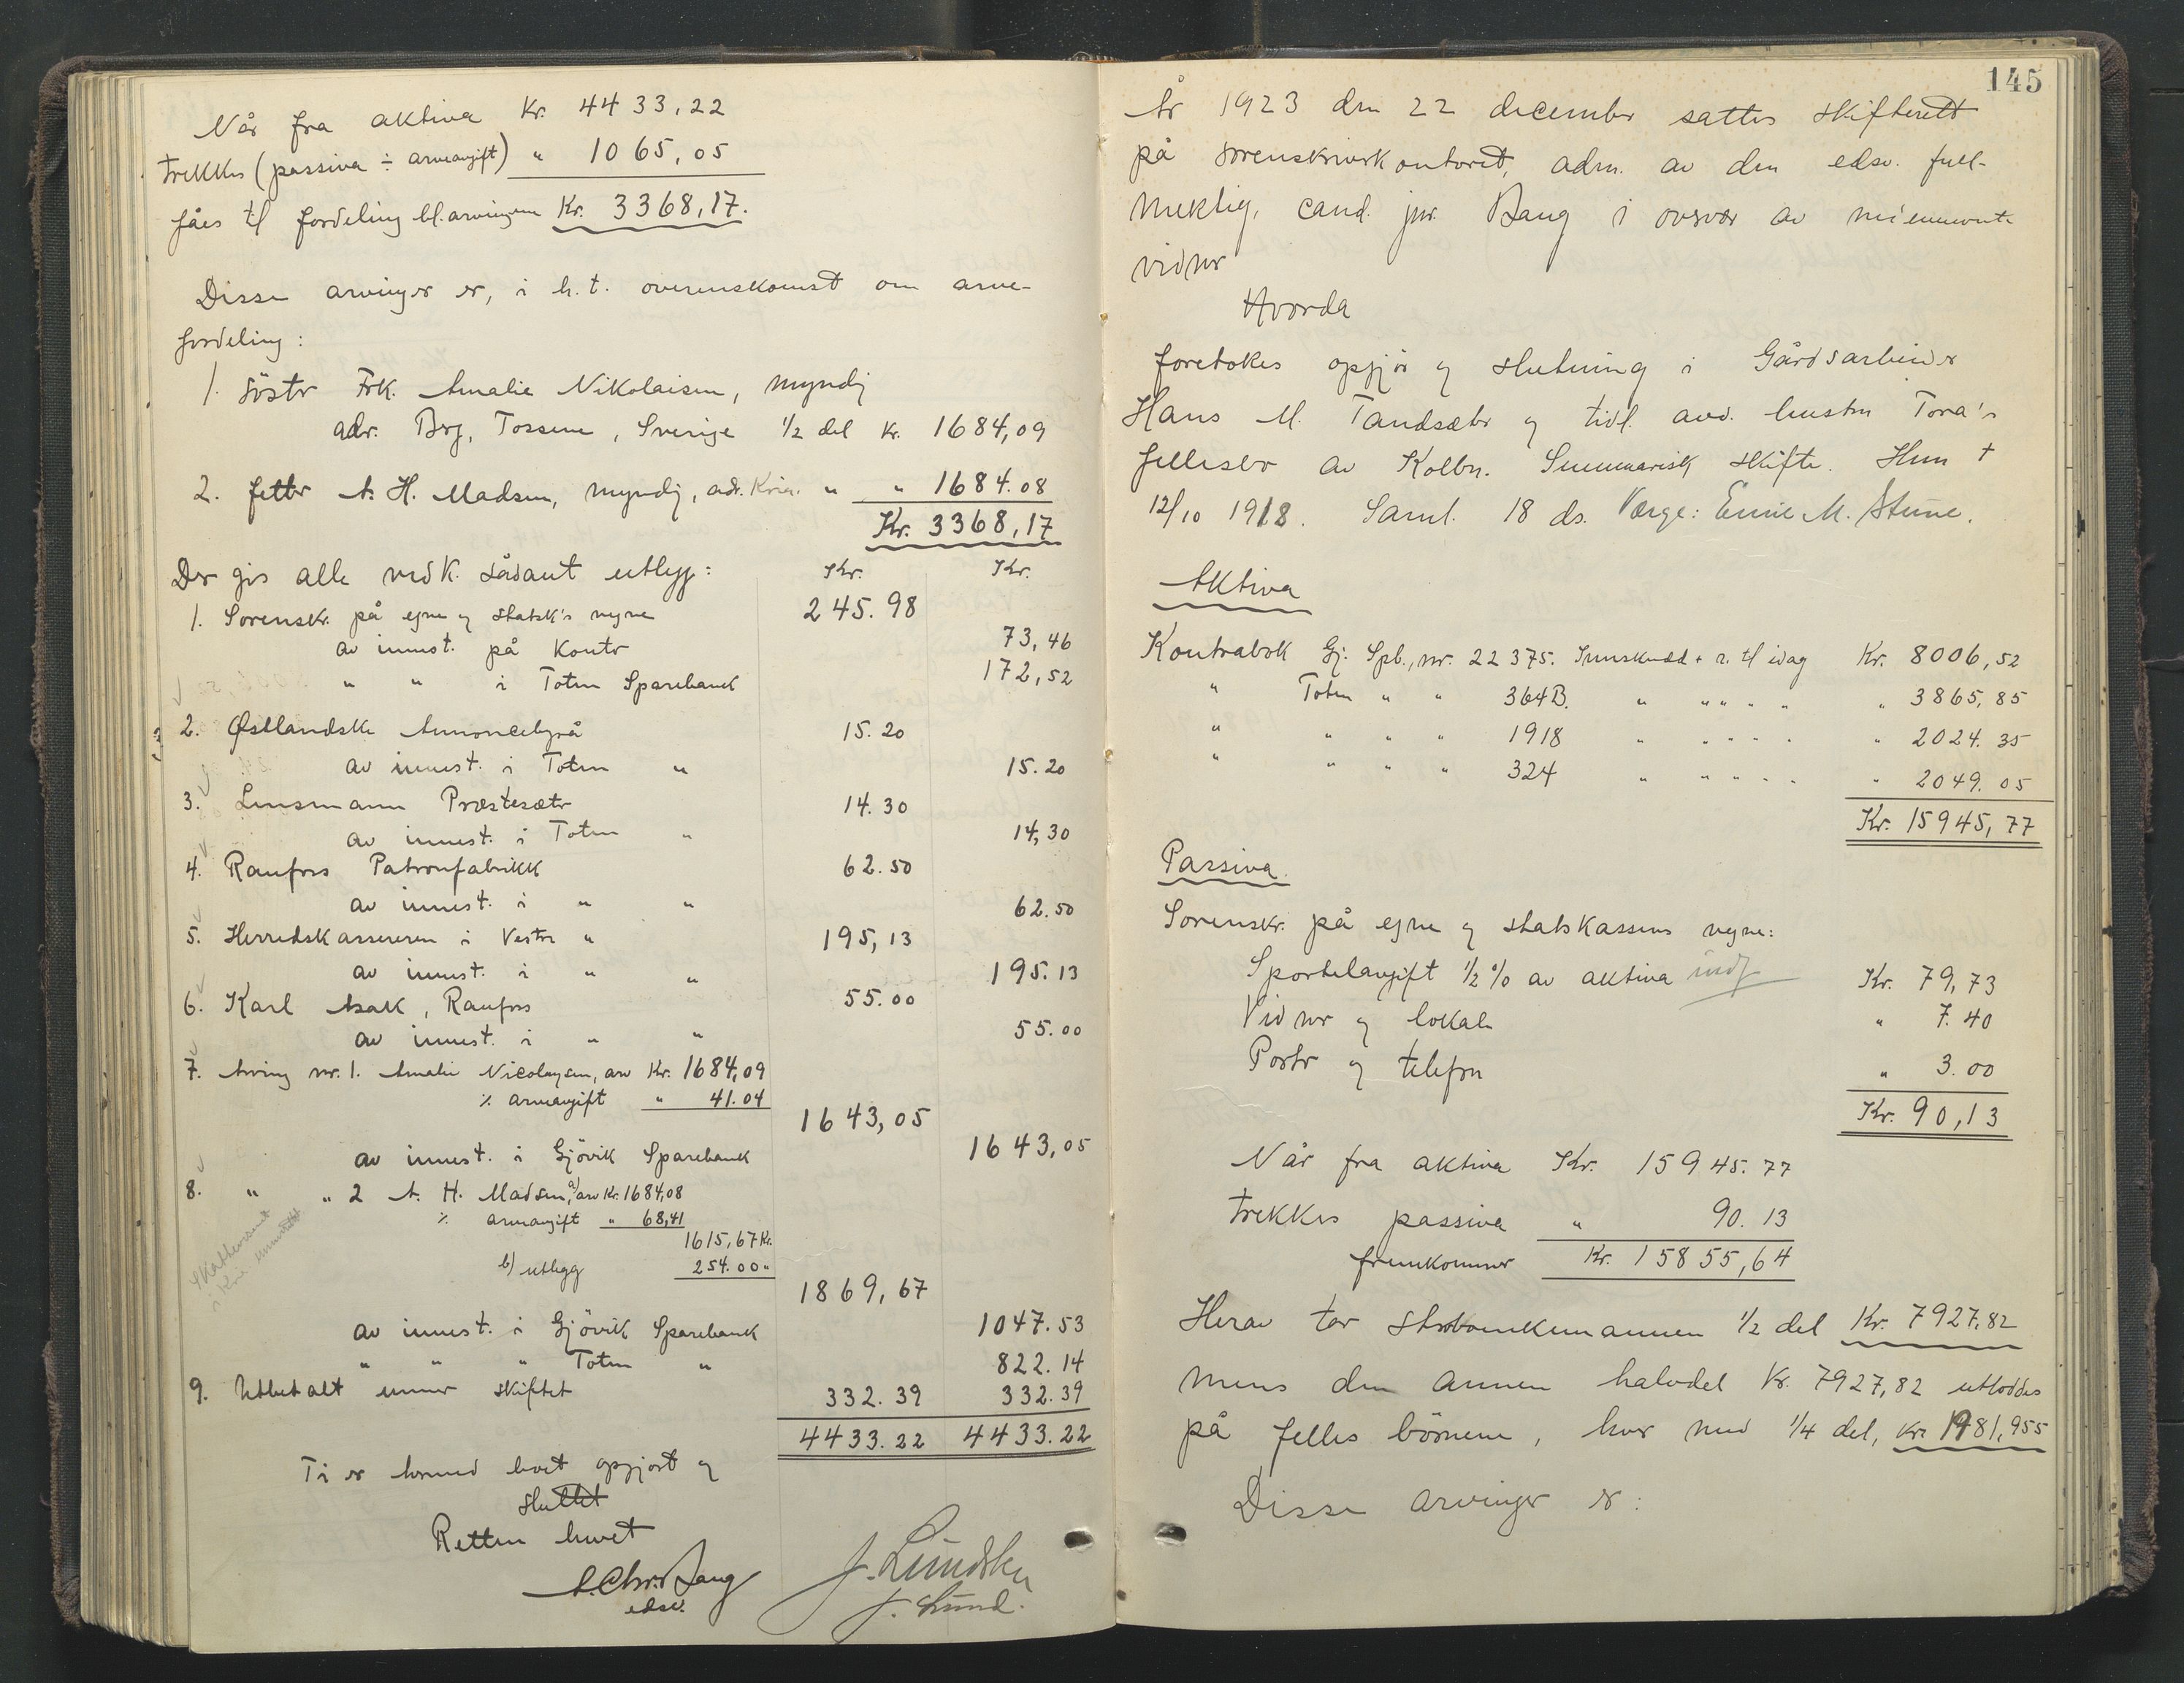 Når fra aktiva Kr. 4433,22
trekkes (passiva ÷ arveavgift) " 1065,05
fåes til fordeling bl. arvingene Kr. 3368,17.
Disse arvinger er, i h.t. overenskomst om arve-
fordeling:
1. söster Frk. Amalie Nikolaisen, myndig
adr. Berg, Tossene, Sverige ½ del Kr. 1684,09
2. fetter A. H. Madsen, myndig, adr. Kria. " " 1684.08
Kr. 3368,17
Der gis alle vedk. sådant utlegg: Kr. Kr.
1. Sorenskr. på egne og statsk's vegne 245.98
av innest. på Kontor 73,46
" " i Toten Sparebank 172,52
2. Østlandske Annoncebyrå 15.20
av innest. i Toten " 15.20
3. Lensmann Præstesæter 14.30
av innest. i Toten " 14,30
4. Raufoss Patronfabrikk 62.50
av innest. i " " 62.50
5. Herredskassereren i Vestre " 195,13
av innest. i " " 195.13
6. Karl Isak, Raufoss 55.00
av innest. i " " 55.00
7. Arving nr. 1. Amalie Nicolaysen, arv Kr. 1684,09
% arveavgift " 41.04
1643,05
av innest. i Gjövik Sparebank 1643,05
8. " " 2 A. H. Madsen, a) arv Kr. 1684,08
% arveavgift " 68,41
1615,67 Kr.
b) utlegg 254.00 "
1869,67
av innest. i Gjövik Sparebank 1047.53
" " " Toten " 822.14
9. Utbetalt under skiftet 332.39 332.39
4433.22 4433.22
Ti er hermed boet opgjort og
sluttet
Retten hevet
A. Chr. Bang
edsv.
J. Lund.
145
År 1923 den 22 december sattes skifterett
på sorenskriverkontoret, adm. av den edsv. full-
mektig, cand. jur. Bang i overvær av
vidner
Hvorda
foretokes opgjör og slutning i Gårdsarbeider
Hans M. Tandsæter og tidl. avd. hustru Tora's
fellesbo av Kolbu. Summarisk skifte. Hun †
12/10 1918. Saml. 18 ds. Værge: M.
Aktiva
Kontrabok Gj. Spb., nr. 22375. Innskudd + r. til idag Kr. 8006,52
" Toten " " 364B. " " " " " " 3865,85
" " " " 1918 " " " " " " 2024.35
" " " " 324 " " " " " " 2049.05
Kr. 15945,77
Passiva.
Sorenskr. på egne og statskassens vegne:
Sportelavgift ½ % av aktiva Kr. 79,73
Vidner og lokale " 7.40
Porto og telefon " 3.00
Kr. 90,13
Når fra aktiva Kr. 15945.77
trekkes passiva " 90.13
fremkommer Kr. 15855,64
Herav tar storbonden ½ del Kr. 7927,82
mens den annen halvdel Kr. 7927,82 utloddes
på felles börnene, hver med ¼ del, Kr. 1981,955
Disse arvinger er: